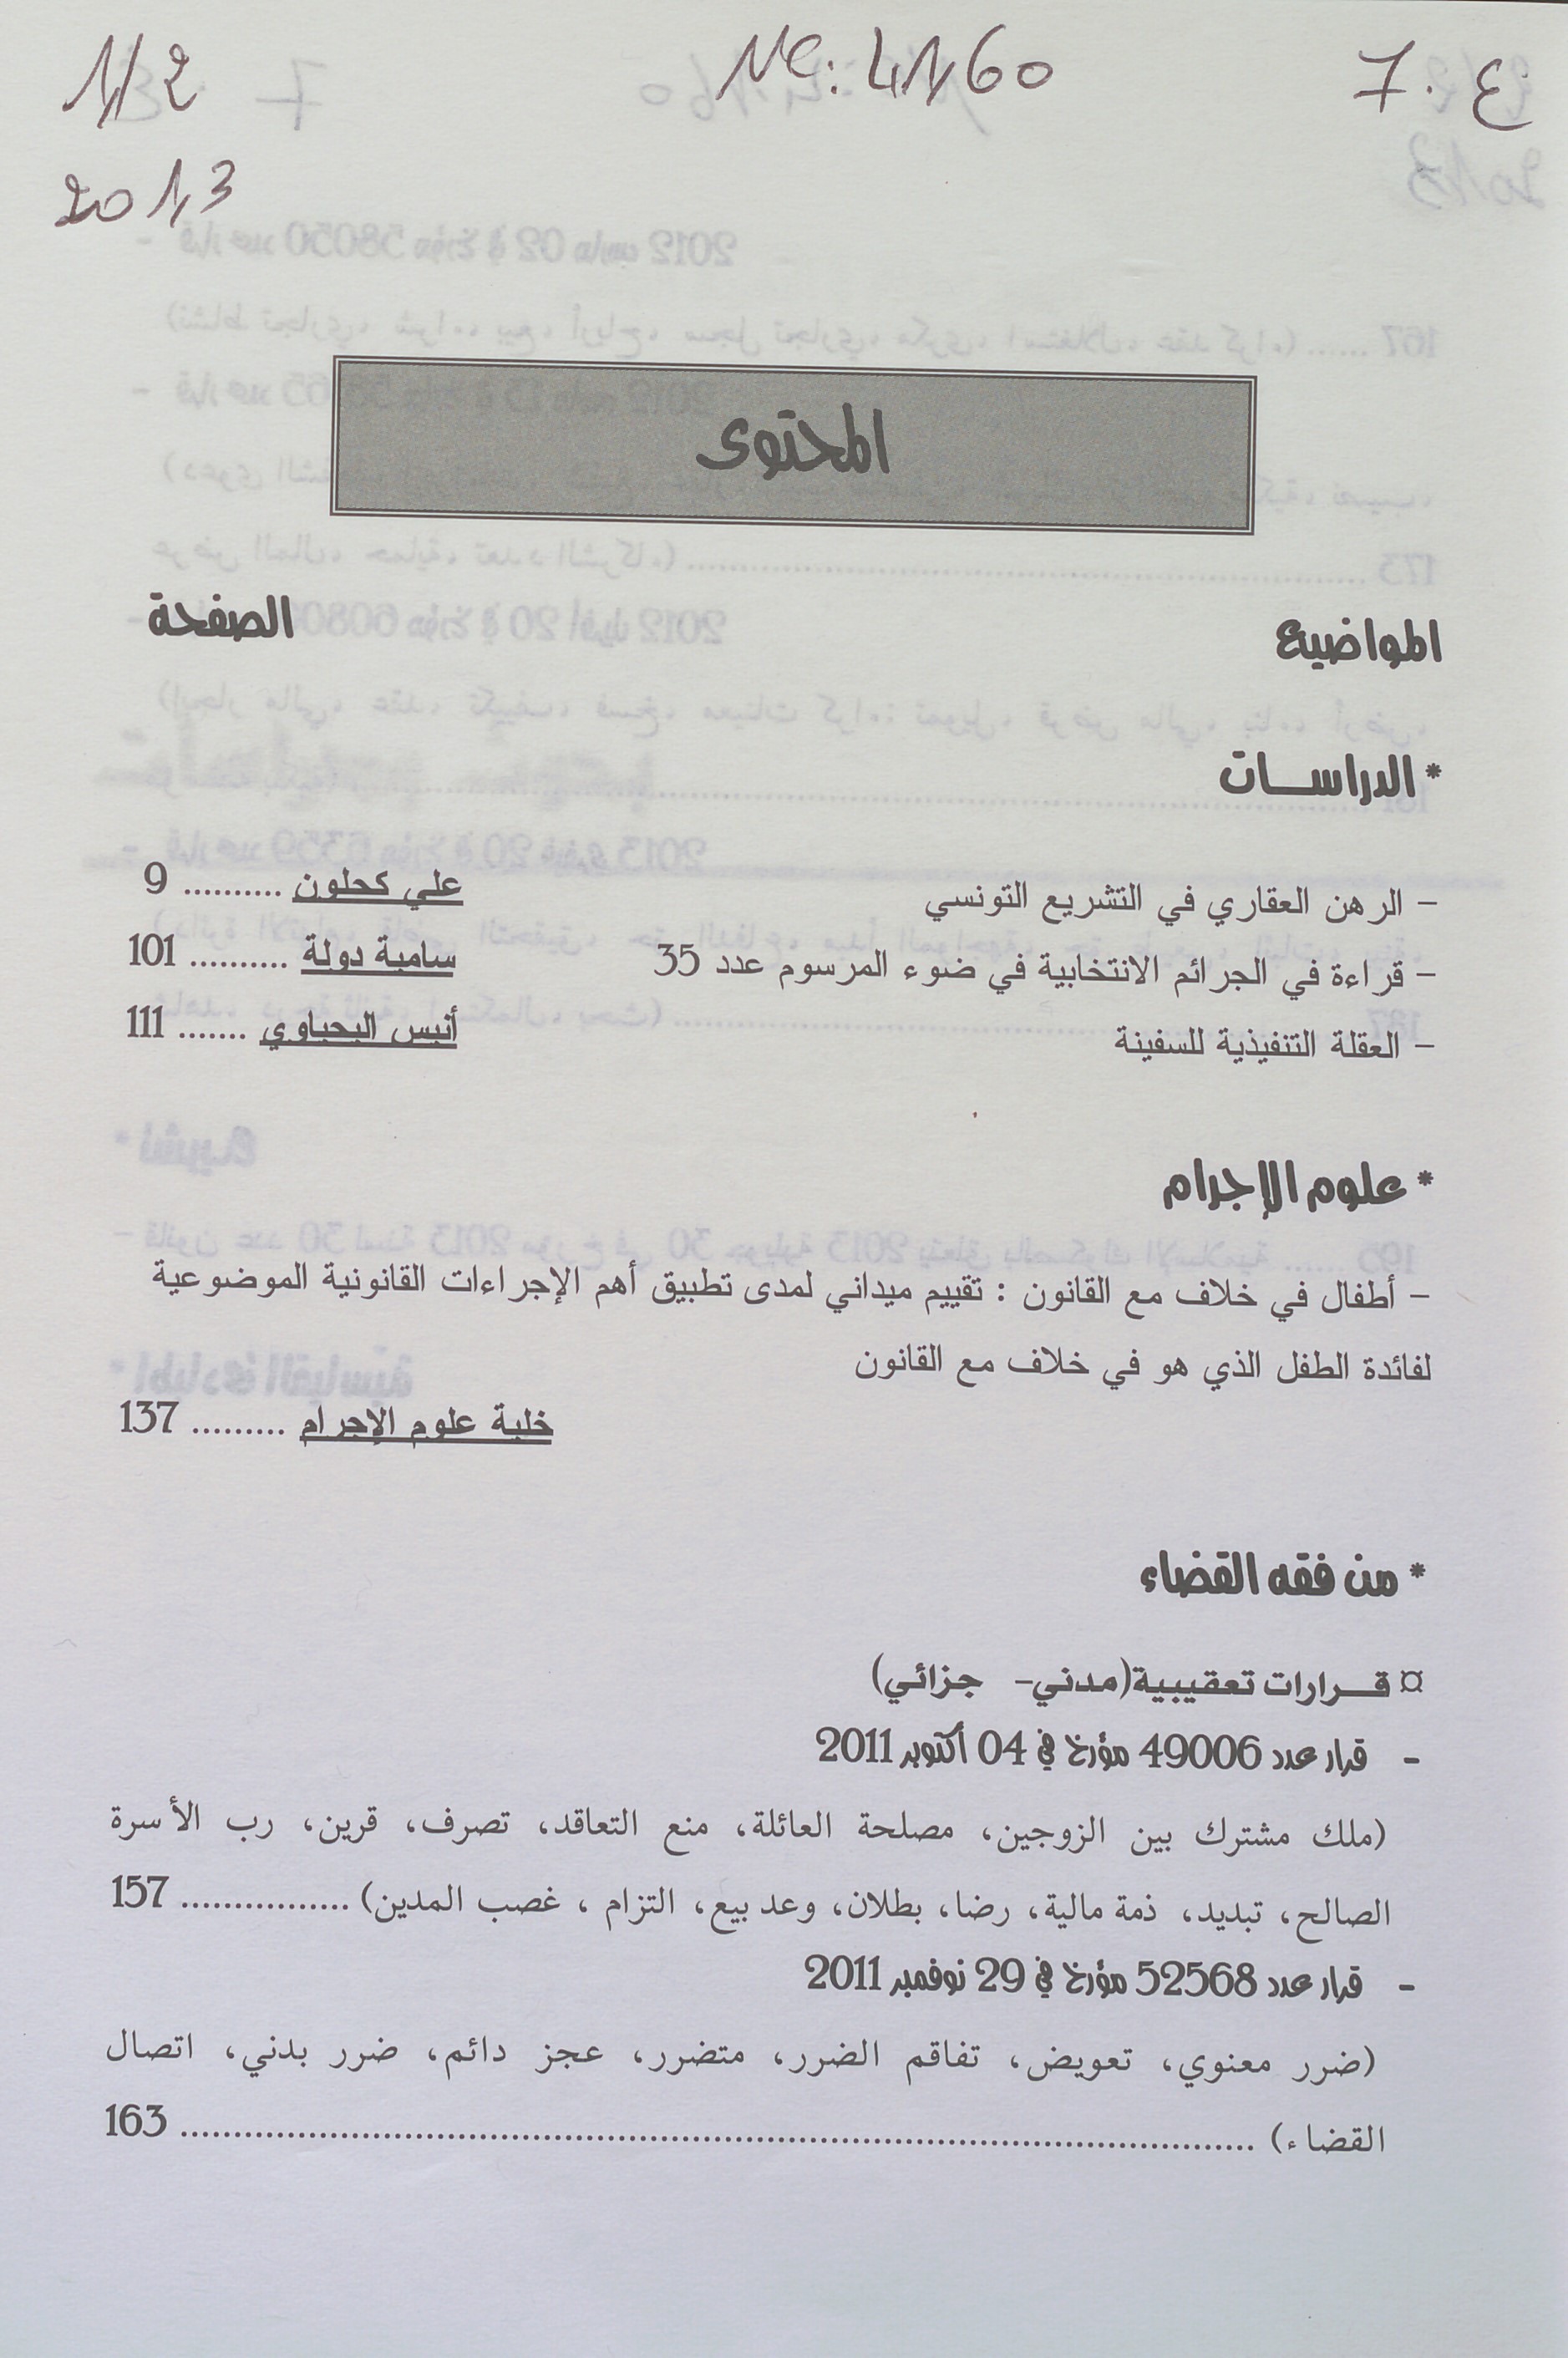 1/2 N°: 4160 7. ع
2013
المحتوى
المواضيع الصفحة
* الدراســـات
– الرهن العقاري في التشريع التونسي علي كحلون .......... 9
– قراءة في الجرائم الانتخابية في ضوء المرسوم عدد 35 سامية دولة .......... 101
– العقلة التنفيذية للسفينة أنيس اليحياوي ....... 111
* علوم الإجرام
– أطفال في خلاف مع القانون : تقييم ميداني لمدى تطبيق أهم الإجراءات القانونية الموضوعية
لفائدة الطفل الذي هو في خلاف مع القانون
خلية علوم الإجرام ......... 137
* من فقه القضاء
¤ قـــرارات تعقيبية(مدني- جزائي)
- قرار عدد 49006 مؤرخ في 04 أكتوبر 2011
(ملك مشترك بين الزوجين، مصلحة العائلة، منع التعاقد، تصرف، قرين، رب الأسرة
الصالح، تبديد، ذمة مالية، رضا، بطلان، وعد بيع، التزام ، غصب المدين) ................ 157
- قرار عدد 52568 مؤرخ في 29 نوفمبر 2011
(ضرر معنوي، تعويض، تفاقم الضرر، متضرر، عجز دائم، ضرر بدني، اتصال
القضاء) ........................................................................................................ 163